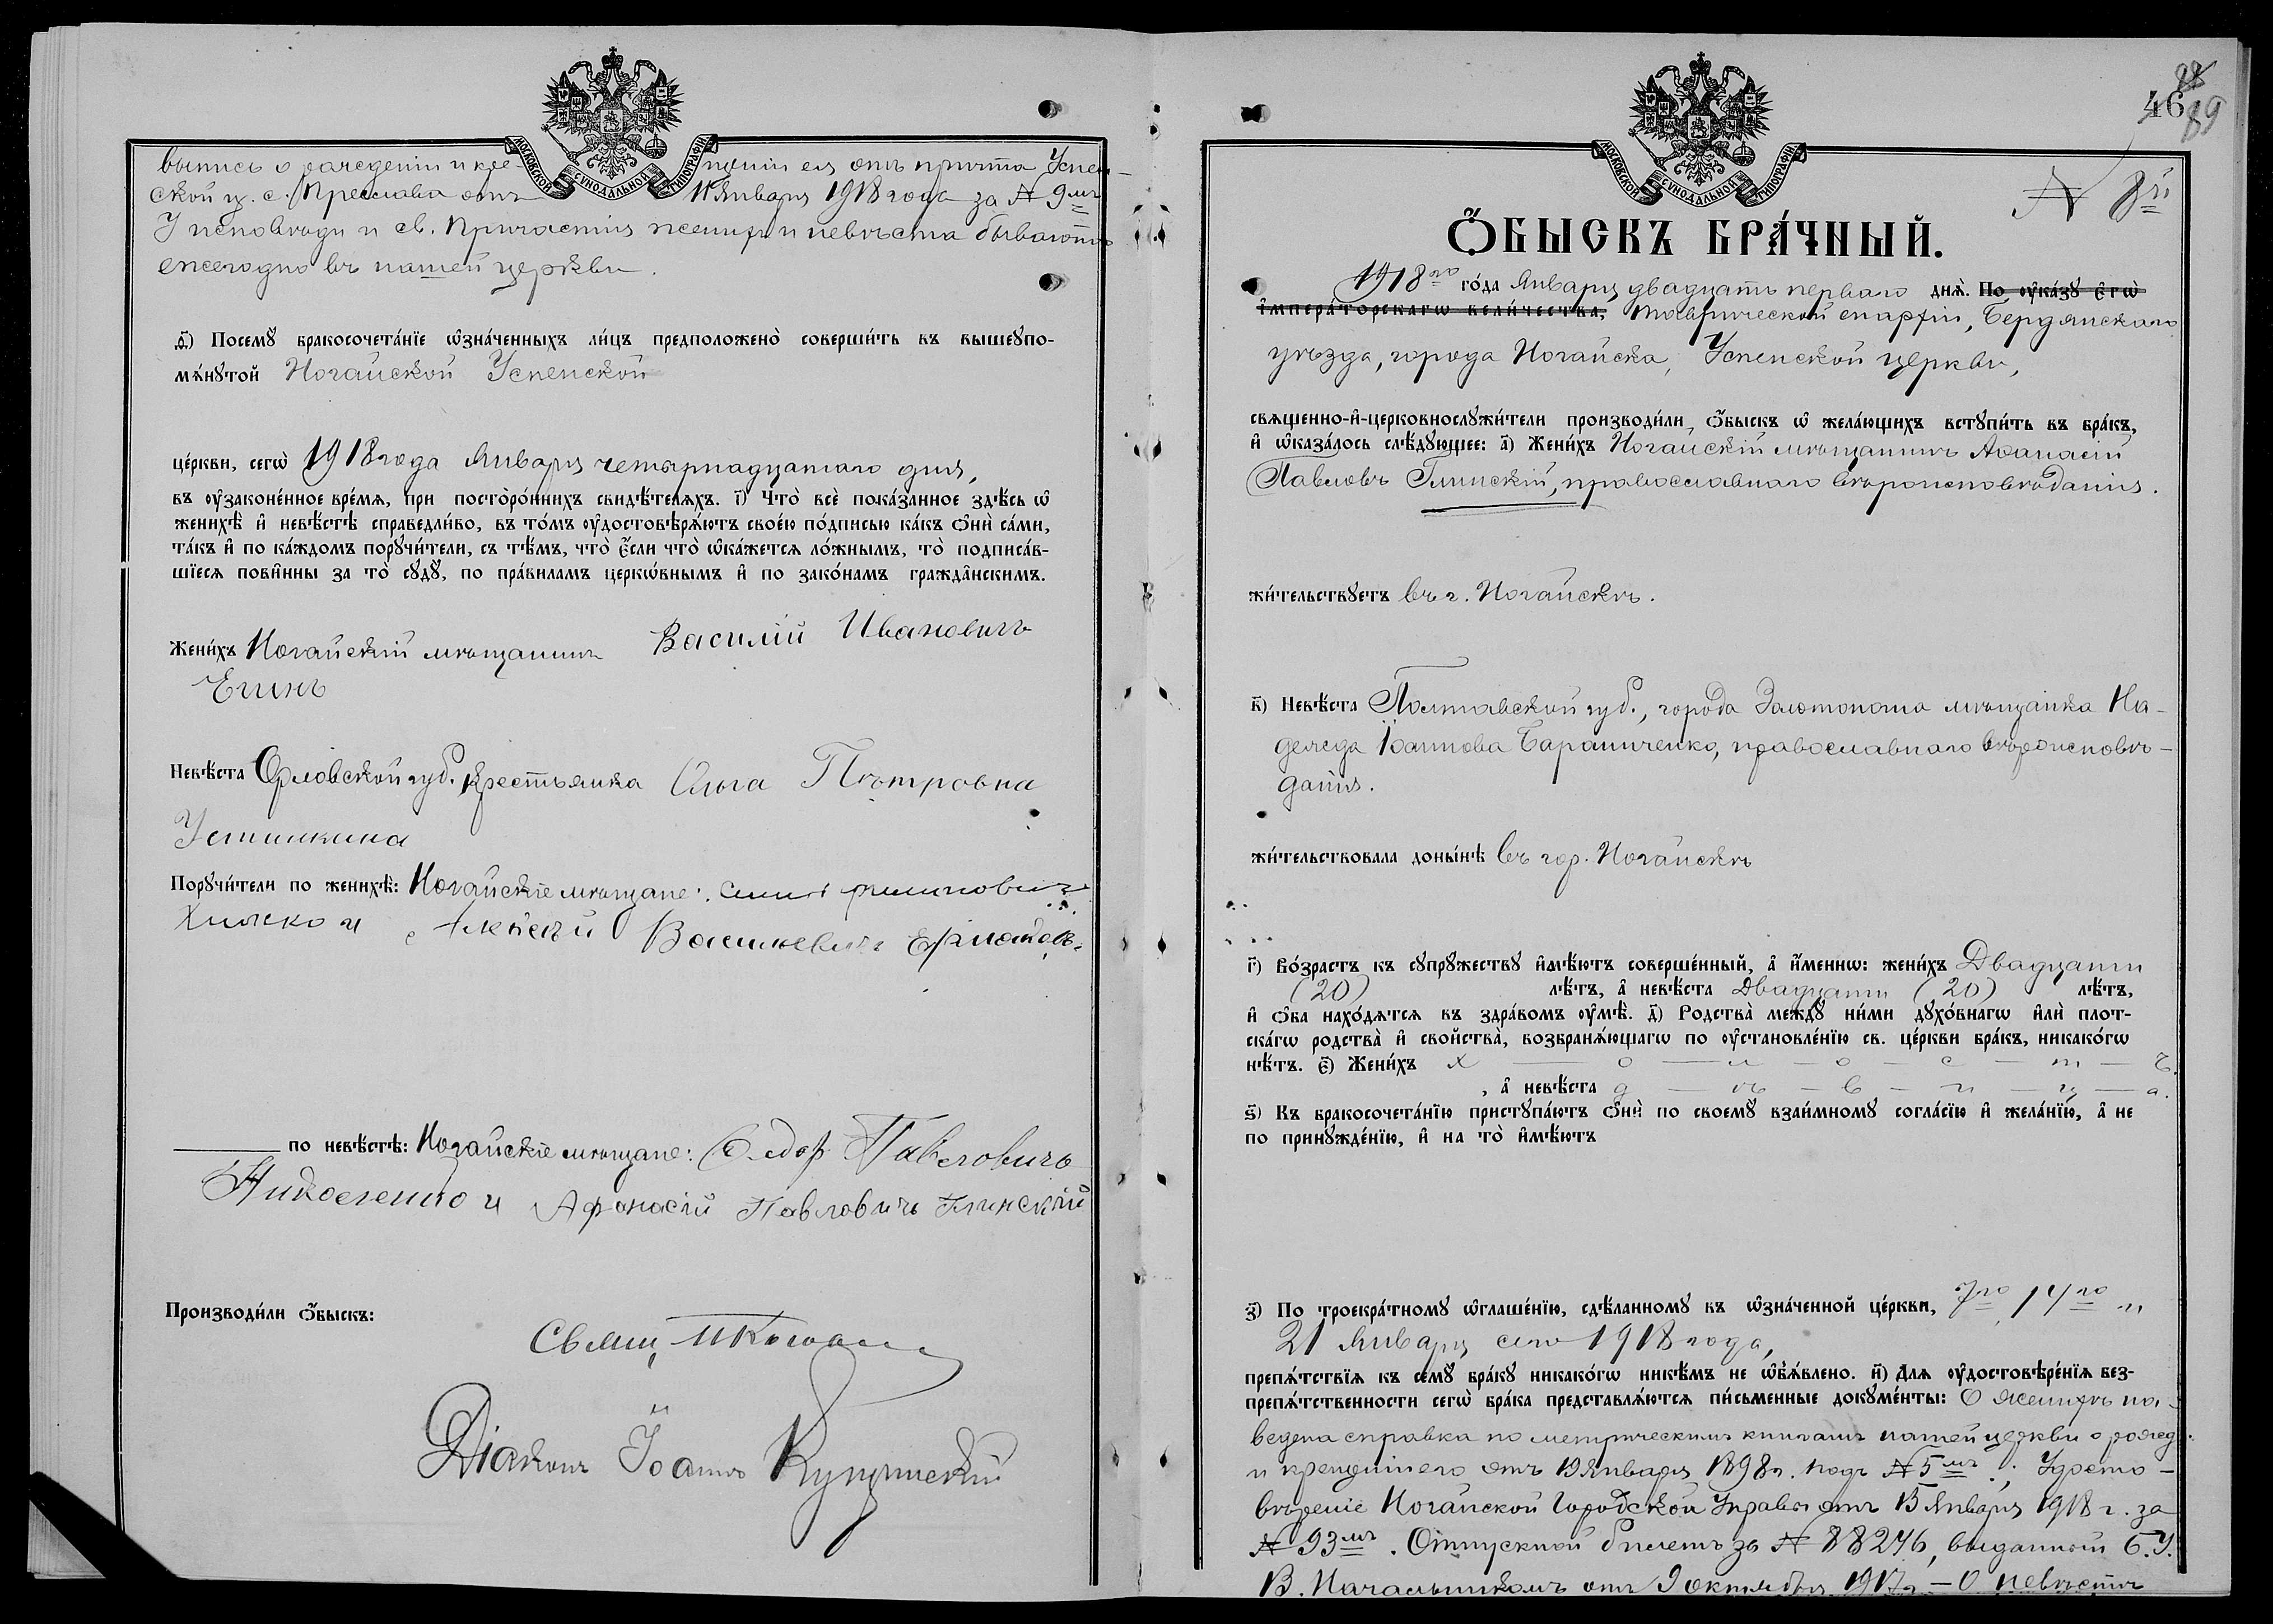 МОСКОВСКОЙ СѴНОДАЛЬНОЙ ТИПОГРАФІИ
выпись о рожденіи и кре- щеніи ея отъ причта Успен-
ской ц. с. Преслава отъ 11 Января 1918 года за № 9мъ
У исповѣди и св. Причастія женихъ и невѣста бываютъ
ежегодно въ нашей церкви.
Посемꙋ бракосочета́нїе ѡ҆зна́ченныхъ ли́цъ предположено̀ соверши́ть въ вышеупо-
мѧ́нꙋтой Ногайской Успенской
це́ркви, сегѡ̀ 1918 года Января четырнадцатаго дня,
въ оу҆законе́нное вре́мѧ, при посторо́ннихъ свидѣ́телѧхъ. і҃) Что̀ всѐ пока́занное здѣ́сь ѡ҆
женихѣ̀ и҆ невѣ́стѣ справедли́во, въ то́мъ оу҆достовѣрѧ́ютъ свое́ю по́дписью ка́къ ѻ҆нѝ са́ми,
та́къ и҆ по ка́ждомъ порꙋчи́тели, съ тѣ́мъ, что̀ є҆́сли что̀ ѡ҆ка́жетсѧ ло́жнымъ, то̀ подписа́в-
шїесѧ пови́нны за то̀ сꙋдꙋ̀, по пра́виламъ церкѡ́внымъ и҆ по зако́намъ гражда̂нскимъ.
Жени́хъ Ногайскій мѣщанинъ Василій Ивановичъ
Егинъ
Невѣ́ста Орловской губ. крестьянка Ольга Пѣтровна
Устинкина
Порꙋчи́тели по женихѣ̀: Ногайскіе мѣщане:
и Алексѣй Васильевичъ
по невѣ́стѣ: Ногайскіе мѣщане: Павловичъ
и Афонасій Павловичъ Глинскій
Производи́ли ѻ҆́быскъ:
Свящ.
Діаконъ Іоаннъ
МОСКОВСКОЙ СѴНОДАЛЬНОЙ ТИПОГРАФІИ
46
89
№ 8й
Ѻ҆́БЫСКЪ БРА́ЧНЫЙ.
1918го го́да Января двадцать перваго днѧ̀. По оу҆ка́зꙋ є҆гѡ̀
і҆мпера́торскагѡ вели́чества, Таврической епархіи, Бердянскаго
уѣзда, города Ногайска, Успенской церкви,
сващенно-и҆-церковнослꙋжи́тели производи́ли ѻ҆́быскъ ѡ҆ жела́ющихъ встꙋпи́ть въ бра́къ,
и҆ ѡ҆каза́лось слѣ́дꙋющее: а҃) Жени́хъ Ногайскій мѣщанинъ Аѳанасій
Павловъ Глинскій, православнаго вѣроисповѣданія.
жи́тельствꙋетъ въ г. Ногайскѣ.
в҃) Невѣ́ста Полтавской губ., города Золотоноша мѣщанка На-
дежда Іоаннова Бараниченко, православнаго вѣроисповѣ-
данія.
жи́тельствовала доны́нѣ въ гор. Ногайскѣ
г҃) Во́зрастъ къ сꙋпрꙋ́жествꙋ и҆мѣ́ютъ соверше́нный, а҆ и҆́меннѡ: жени́хъ Двадцати
(20) лѣ́тъ, а҆ невѣ́ста Двадцати (20) лѣ́тъ,
и҆ ѻ҆́ба нахо́дѧтсѧ въ здра́вомъ оу҆мѣ̀. д҃) Родства̀ междꙋ̀ ни́ми дꙋхо́внагѡ и҆лѝ плот-
ска́гѡ родства̀ и҆ сво́йства̀, возбранѧ́ющагѡ по оу҆становле́нїю св. це́ркви бра́къ, никако́гѡ
нѣ́тъ. є҃) Жени́хъ х — о — л — о — с — т — ъ
, а҆ невѣ́ста д — ѣ — в — и — ц — а.
ѕ҃) Къ бракосочета́нїю пристꙋпа́ютъ ѻ҆нѝ по своемꙋ̀ взаи́мномꙋ согла́сїю и҆ жела́нїю, а҆ не
по принꙋжде́нїю, и҆ на то̀ и҆мѣ́ютъ
з҃) По троекра́тномꙋ ѡ҆глаше́нїю, сдѣ́ланномꙋ въ ѡ҆зна́ченной це́ркви, 7го, 14го и
21 Января сего 1918 года,
препѧ́тствїѧ къ семꙋ̀ бра́кꙋ никако́гѡ никѣ́мъ не ѡ҆б̾ѧ́влено. и҃) Для оу҆достовѣре́нїѧ без-
препѧ́тственности сегѡ̀ бра́ка представлѧ́ютсѧ пи́сьменные докꙋме́нты: О женихѣ на-
ведена справка по метрическимъ книгамъ нашей церкви о рожд.
и крещеніи его отъ 19 Января 1898 г. подъ № 5мъ; Удосто-
вѣреніе Ногайской Городской Управы отъ 15 Января 1918 г. за
№ 93мъ. Отпускной билетъ за № 88246, выданный Б. У.
В. Начальникомъ отъ 9 октября 1917 г. — О невѣстѣ